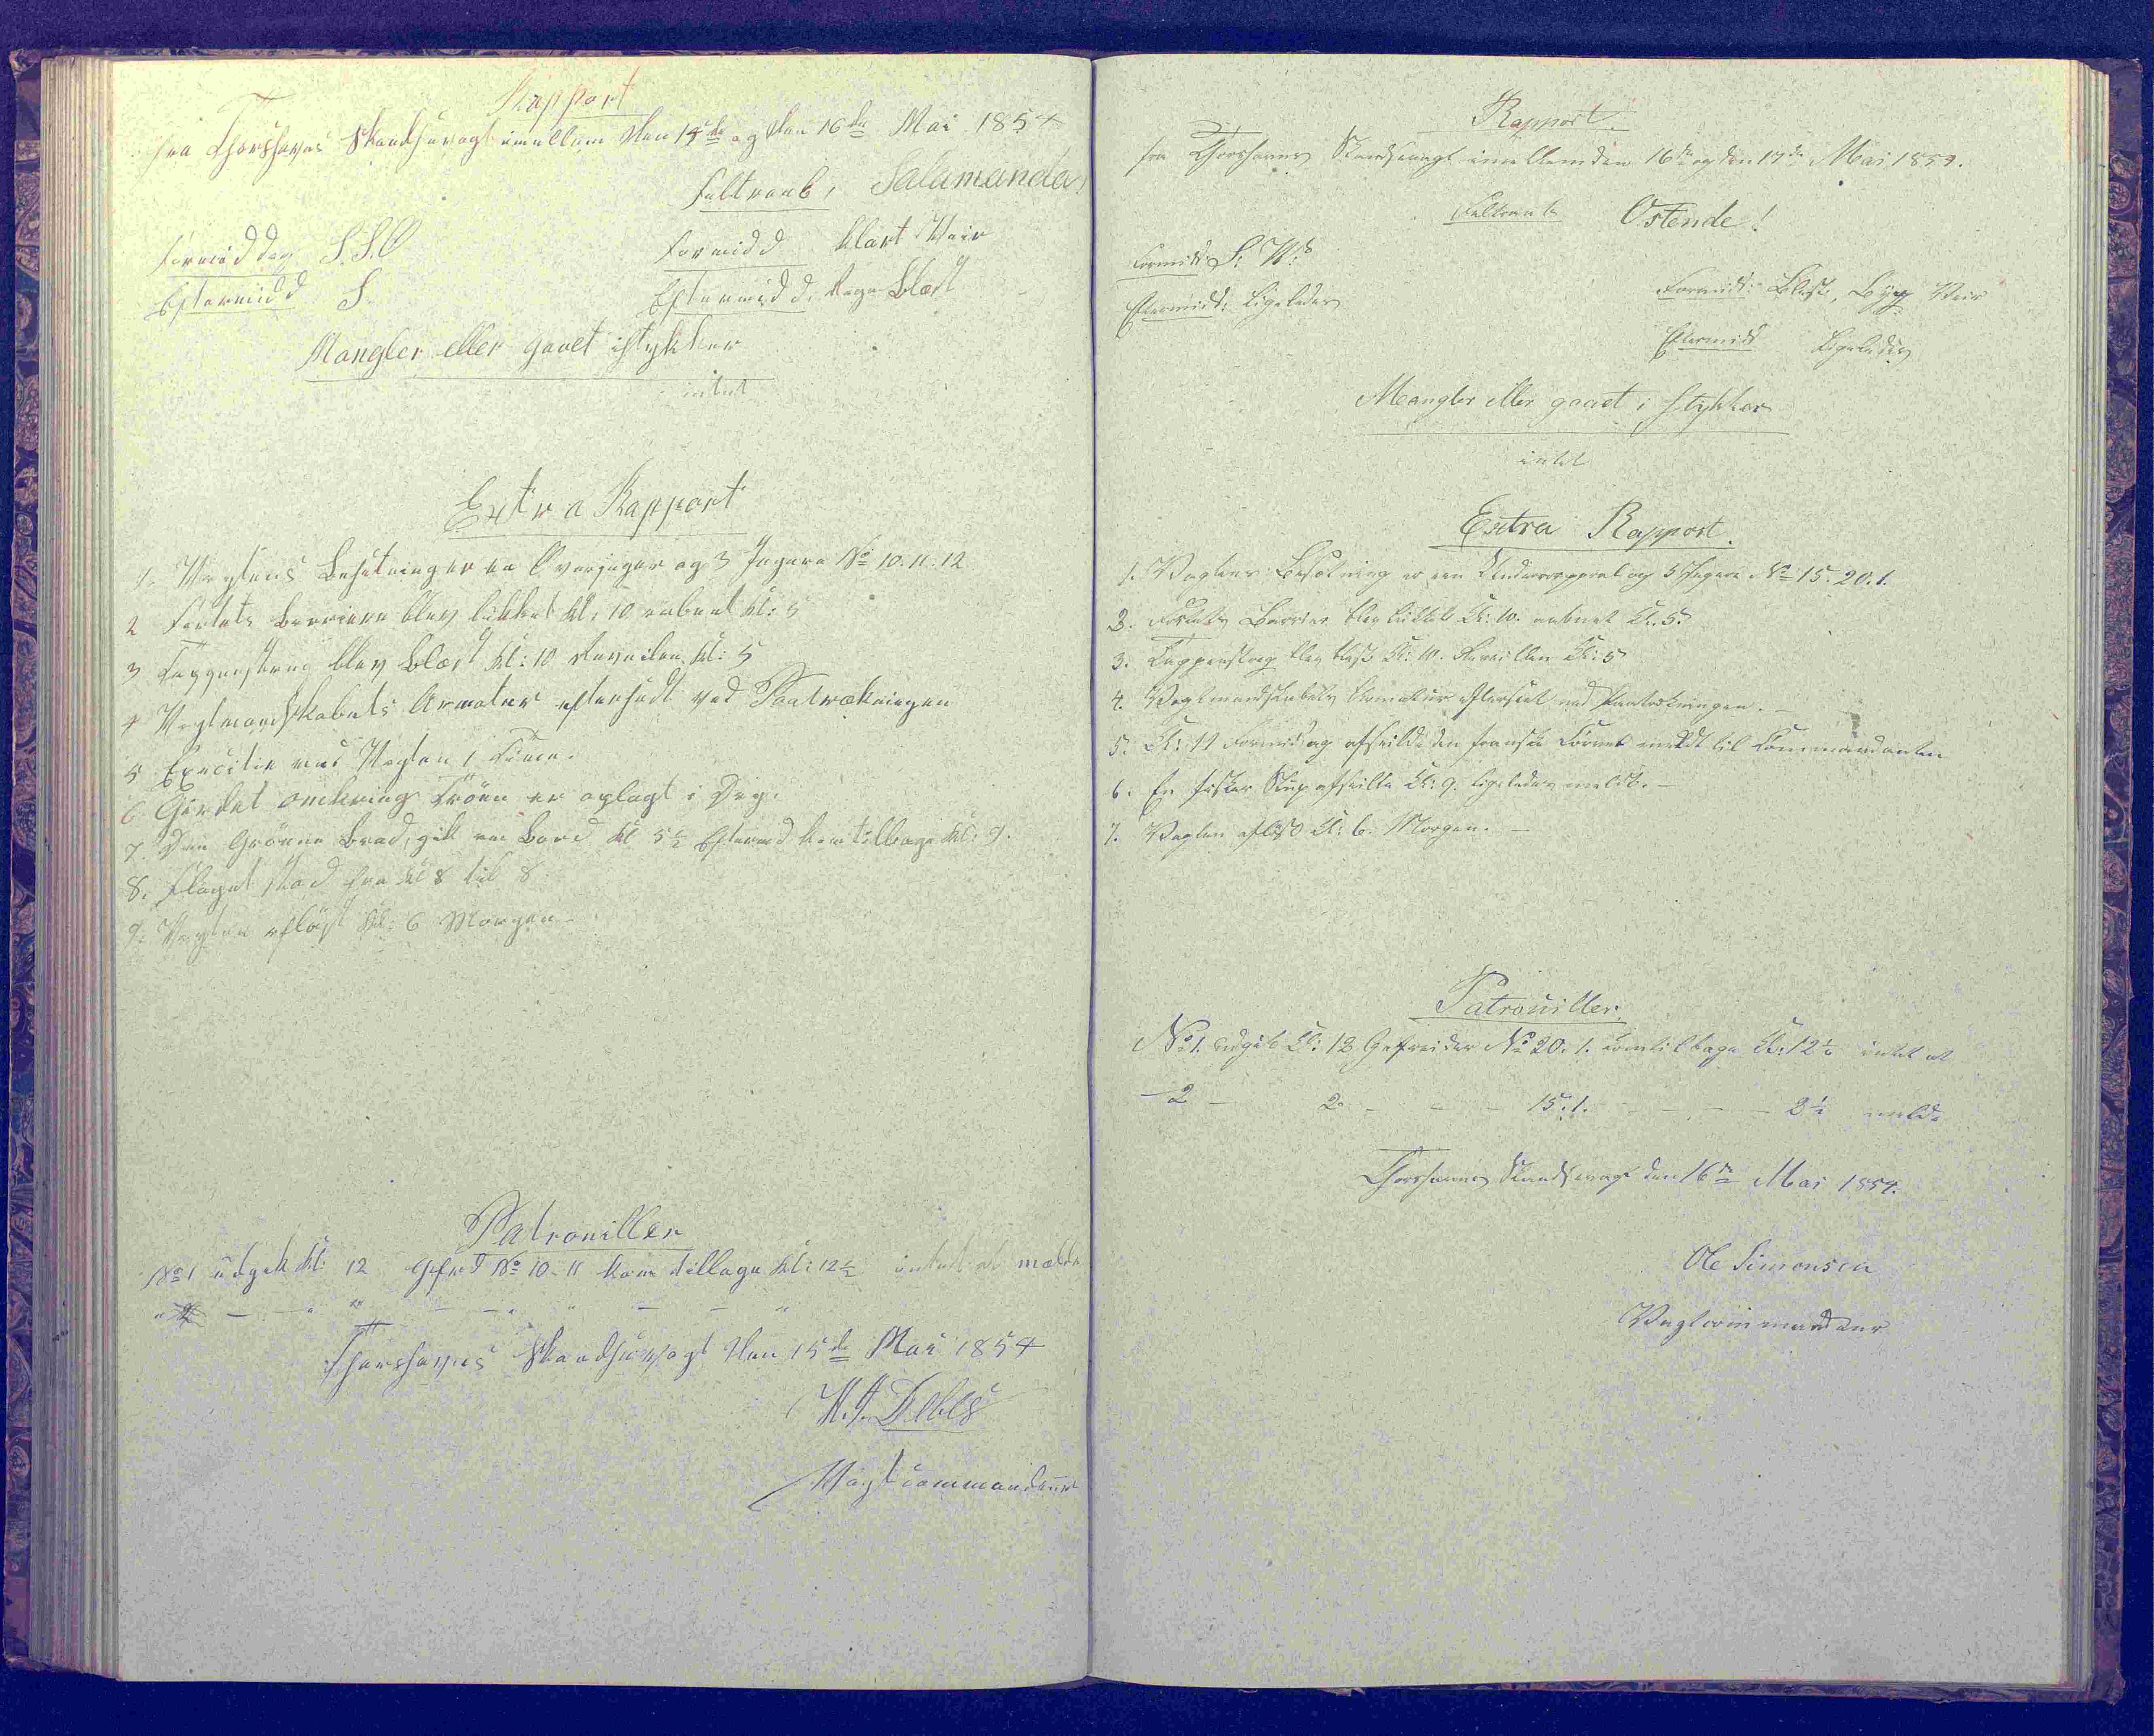 Rapport
fra Thorshavns Skandsevagt imellem den 15de og den 16de Mai 1854
Feltraab, Salamanda!
Formiddag S.S.O
Formidd klart Veir
Eftermidd S.
Eftermidd. Regn Blæst
Mangler eller gaaet istykker
intet
Extra Rapport
1. Vagtens Besetning er en Overjæger og 3 Jægere No 10. 11. 12
2 Fortets Barriere blev lukket Kl: 10 aabnet Kl: 5
3 Tappenstreg blev blæst Kl: 10 Reveilen Kl: 5
4 Vagtmandskabets Armatur efterseet ved Paatrækningen
5 Exercitie ved Vagten 1 Time.
6 Gerdet omkring er oplagt i Dag.
7. Den Grönne Baad, gik om Bord Kl 5½ Eftermd kom tilbage Kl: 9.
8. Flaget stod fra Kl 8 til 8
9. Vagten aflöst Kl: 6 Morgen
Patrouiller
No 1 udgik Kl: 12 Gefrd No 10-11 kom tilbage Kl: 12½ intet at melde
Thorshavns Skandsevagt den 15de Mai 1854
H. J. Debes
Vagtcommandeur
Rapport.
fra Thorshavns Skandsevagt imellem den 16de og den 17de Mai 1854.
Feltraab Ostende!
Formidd: S: W:
Formidd: Blæst, Byg Veir
Eftermidd: Ligeledes
Eftermidd Ligeledes
Mangler eller gaaet i stykker
intet
Extra Rapport.
1. Vagtens Besætning er en Undercorporal og 3 Jægere No 15. 20. 1.
2. Fortets Barrier blev lukket Kl: 10. aabnet Kl. 5.
3. Tappenstreg blev blæst Kl: 10. Reveillen Kl: 5
4. Vagtmandskabets Armatur efterseet ved Paatrækningen. —
5. Kl: 11 Formiddag afseilede den franske meldt til Commandanten
6. En fisker Slup afseilte Kl: 9. ligeledes meldt. —
7. Vagten aflöst Kl: 6. Morgen. —
Patrouiller.
No 1. udgik Kl: 12 Gefreider No 20. 1. kom tilbage Kl: 12½ intet at
— 2 — 2 — — — 15. 1. — — — — 2½ melde
Thorshavns Skandsevagt den 16de Mai 1854.
Ole Simonsen
Vagtcommandeur